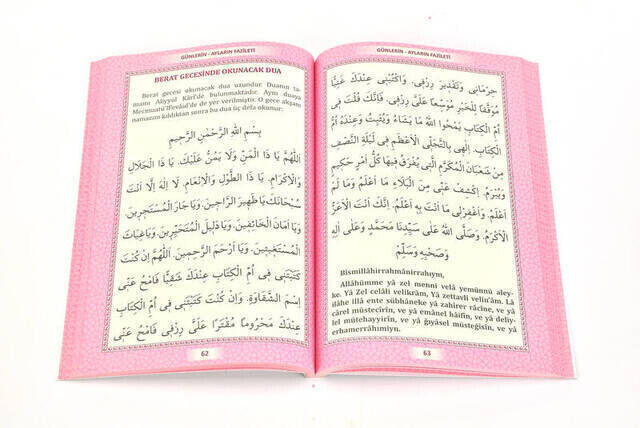 GÜNLERİN - AYLARIN FAZİLETİ
BERAT GECESİNDE OKUNACAK DUA
Berat gecesi okunacak dua uzundur. Duanın ta-
mamı Aliyyül Kâri'de bulunmaktadır. Aynı duaya
Mecmuatü'lfevâid'de de yer verilmiştir. O gece akşam
namazını kıldıktan sonra bu dua üç defa okunur:
بِسْمِ اللّٰهِ الرَّحْمٰنِ الرَّحِيمِ
اَللّٰهُمَّ يَا ذَا الْمَنِّ وَلَا يَمُنُّ عَلَيْكَ. يَا ذَا الْجَلَالِ
وَالْاِكْرَامِ. يَا ذَا الطَّوْلِ وَالْاِنْعَامِ. لَا اِلٰهَ اِلَّا اَنْتَ
سُبْحَانَكَ يَا ظَهِيرَ الرَّاجِينَ. وَيَا جَارَ الْمُسْتَجِيرِينَ.
وَيَا اَمَانَ الْخَائِفِينَ. وَيَا دَلِيلَ الْمُتَحَيِّرِينَ. وَيَا غِيَاثَ
الْمُسْتَغِيثِينَ. وَيَا اَرْحَمَ الرَّاحِمِينَ. اَللّٰهُمَّ اِنْ كُنْتَ
كَتَبْتَنِى فِى اُمِّ الْكِتَابِ عِنْدَكَ شَقِيًّا فَامْحُ عَنِّى
اِسْمَ الشَّقَاوَةِ. وَاِنْ كُنْتَ كَتَبْتَنِى فِى اُمِّ الْكِتَابِ
عِنْدَكَ مَحْرُومًا مُقَتَّرًا عَلَىَّ رِزْقِى فَامْحُ عَنِّى
62
GÜNLERİN - AYLARIN FAZİLETİ
حِرْمَانِى وَتَقْتِيرَ رِزْقِى. وَاكْتُبْنِى عِنْدَكَ غَنِيًّا
مُوَفَّقًا لِلْخَيْرِ مُوَسَّعًا عَلَىَّ رِزْقِى. فَاِنَّكَ قُلْتَ فِى
اُمِّ الْكِتَابِ يَمْحُوا اللّٰهُ مَا يَشَاءُ وَيُثْبِتُ وَعِنْدَهُ اُمُّ
الْكِتَابِ. اِلٰهِى بِالتَّجَلِّى الْاَعْظَمِ فِى لَيْلَةِ النِّصْفِ
مِنْ شَعْبَانَ الْمُكَرَّمِ الَّتِى يُفْرَقُ فِيهَا كُلُّ اَمْرٍ حَكِيمٍ
وَيُبْرَمُ. اِكْشِفْ عَنِّى مِنَ الْبَلَاءِ مَا اَعْلَمُ وَمَا لَمْ
اَعْلَمْ. وَاغْفِرْلِى مَا اَنْتَ بِهِ اَعْلَمُ. اِنَّكَ اَنْتَ الْاَعَزُّ
الْاَكْرَمُ. وَصَلَّى اللّٰهُ عَلٰى سَيِّدِنَا مُحَمَّدٍ وَعَلٰى اٰلِهِ
وَصَحْبِهِ وَسَلَّمَ
Bismillâhirrahmânirrahıym,
Allâhümme yâ zel menni velâ yemünnü aley-
ke. Yâ Zel celâli velikrâm, Yâ zettavli velin'âm. Lâ
ilâhe illâ ente sübhâneke yâ zahirer râcîne, ve yâ
cârel müstecirîn, ve yâ emânel hâifîn, ve yâ deliy-
lel mütehayyirîn, ve yâ ğıyâsel müsteğîsin, ve yâ
erhamerrâhımiyn.
63